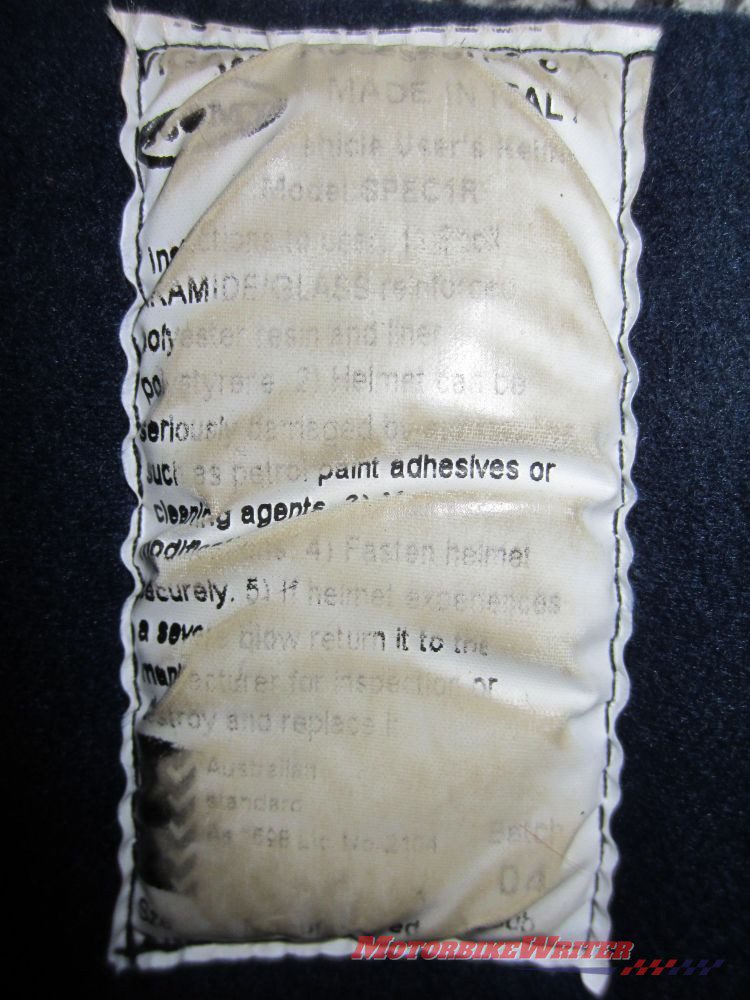 MADE IN ITALY
Vehicle User's Helmet
Model SPEC1R
Instructions to user. 1) Shell
ARAMIDE/GLASS reinforced
polyester resin and liner
polystyrene. 2) Helmet can be
seriously damaged by
such as petrol paint adhesives or
cleaning agents. 3)
modifications. 4) Fasten helmet
securely. 5) If helmet experiences
a severe blow return it to the
manufacturer for inspection or
destroy and replace it
Australian
standard
As 1698 Lic No.2104
Batch
04
MotorbikeWriter